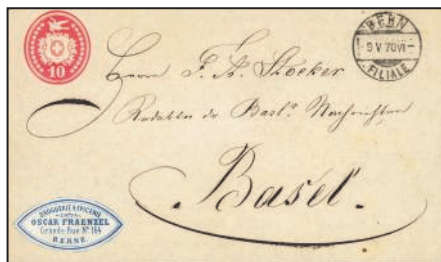 10
BERN
9 V 70 VI
FILIALE
Herrn F. A. Stocker
Redaktor der Basl. Nachrichten
Basel.
DROGUERIE & EPICERIE
OSCAR FRAENZEL
Grande Rue No. 164
BERNE